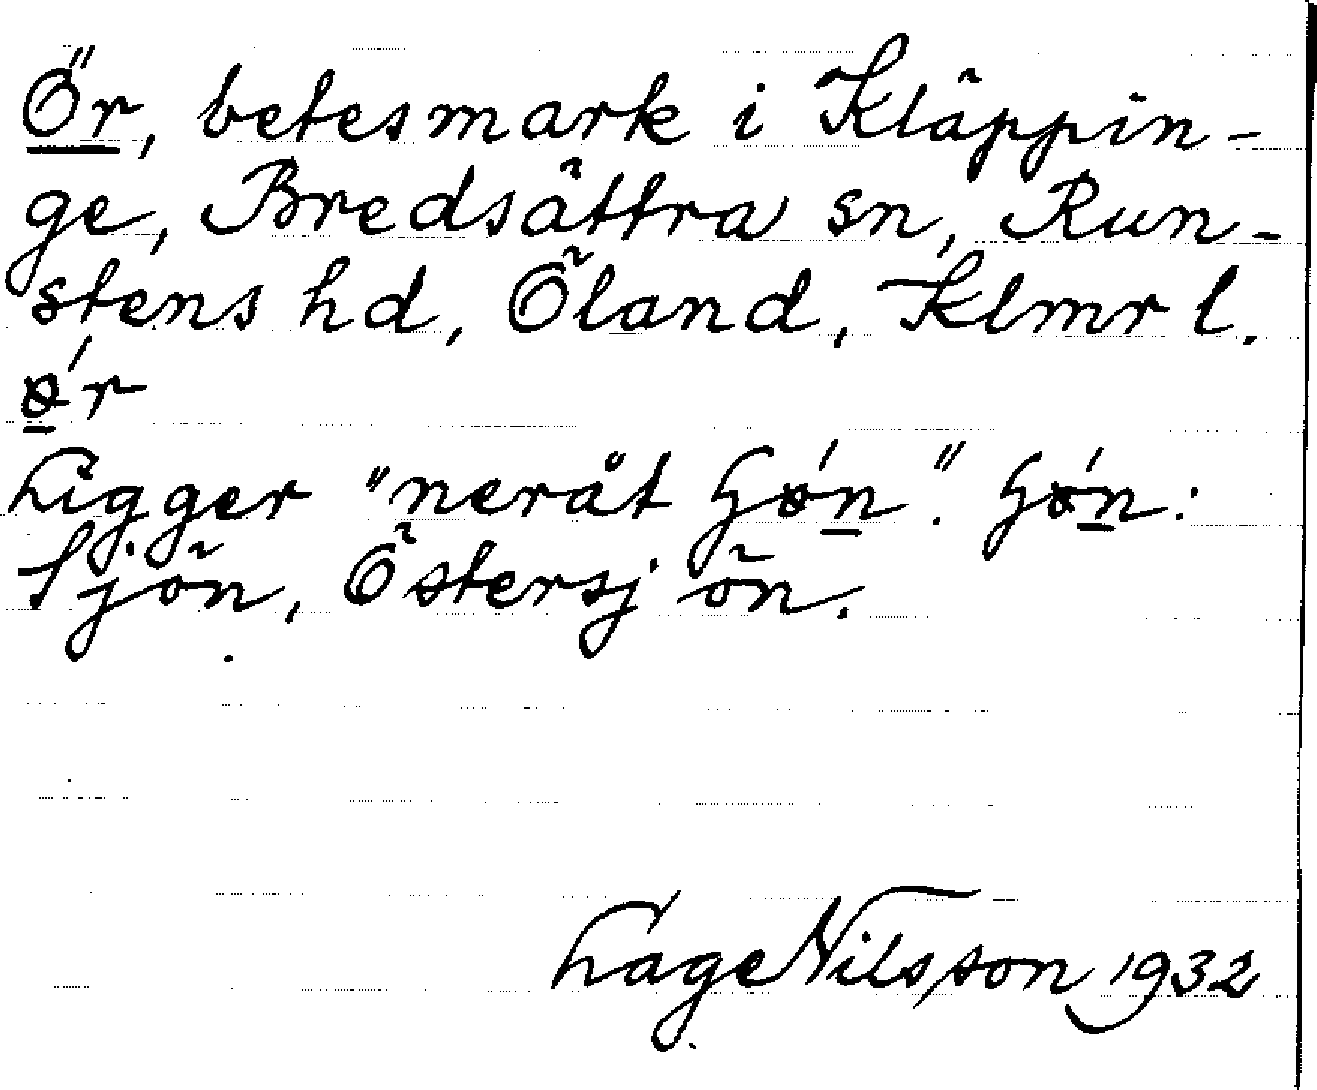 Ör, betesmark i Kläppin-
ge, Bredsättra sn, Run-
stens hd, Öland, Klmr l.
ǿr
Ligger "neråt hǿn". hǿn:
Sjön, Östersjön.
Lage Nilsson 1932